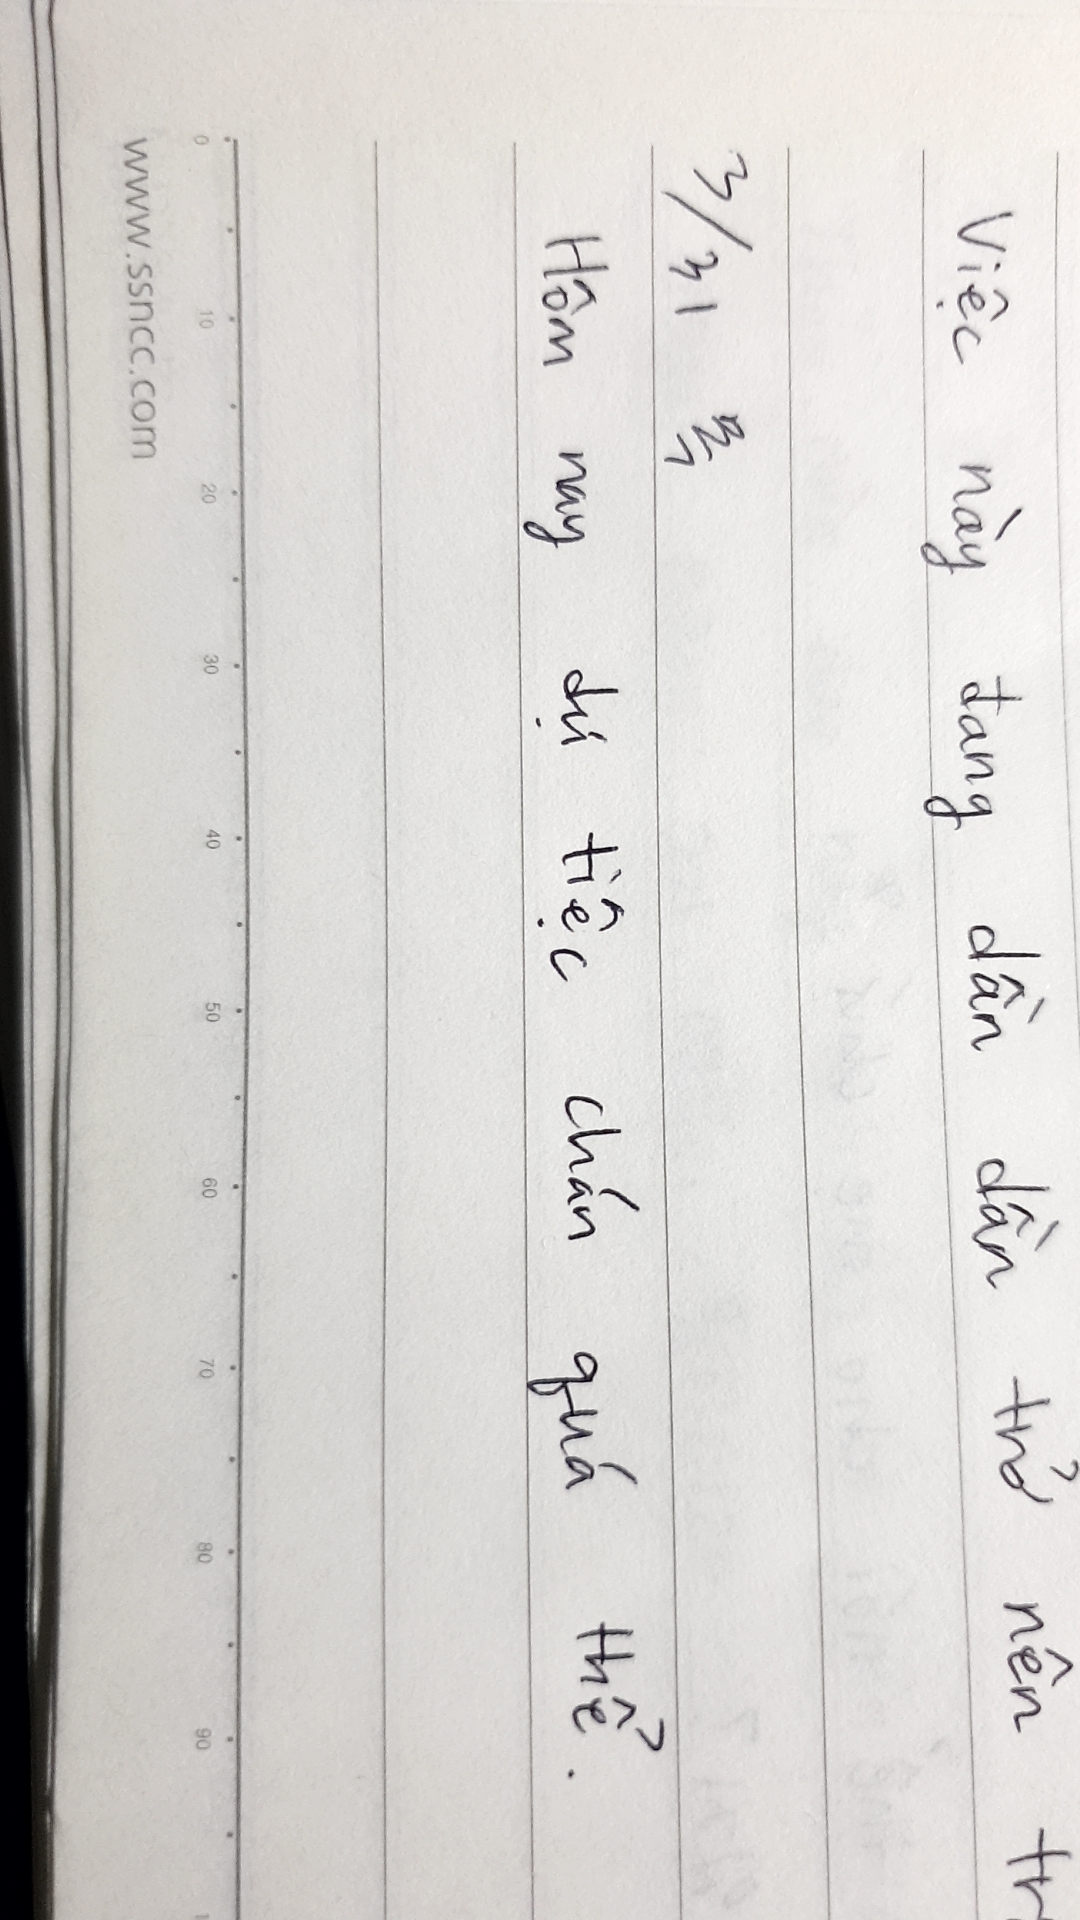 Việc này đang dần dần trở nên tr
3/31 목
Hôm nay dự tiệc chán quá thể.
0 10 20 30 40 50 60 70 80 90
www.ssncc.com